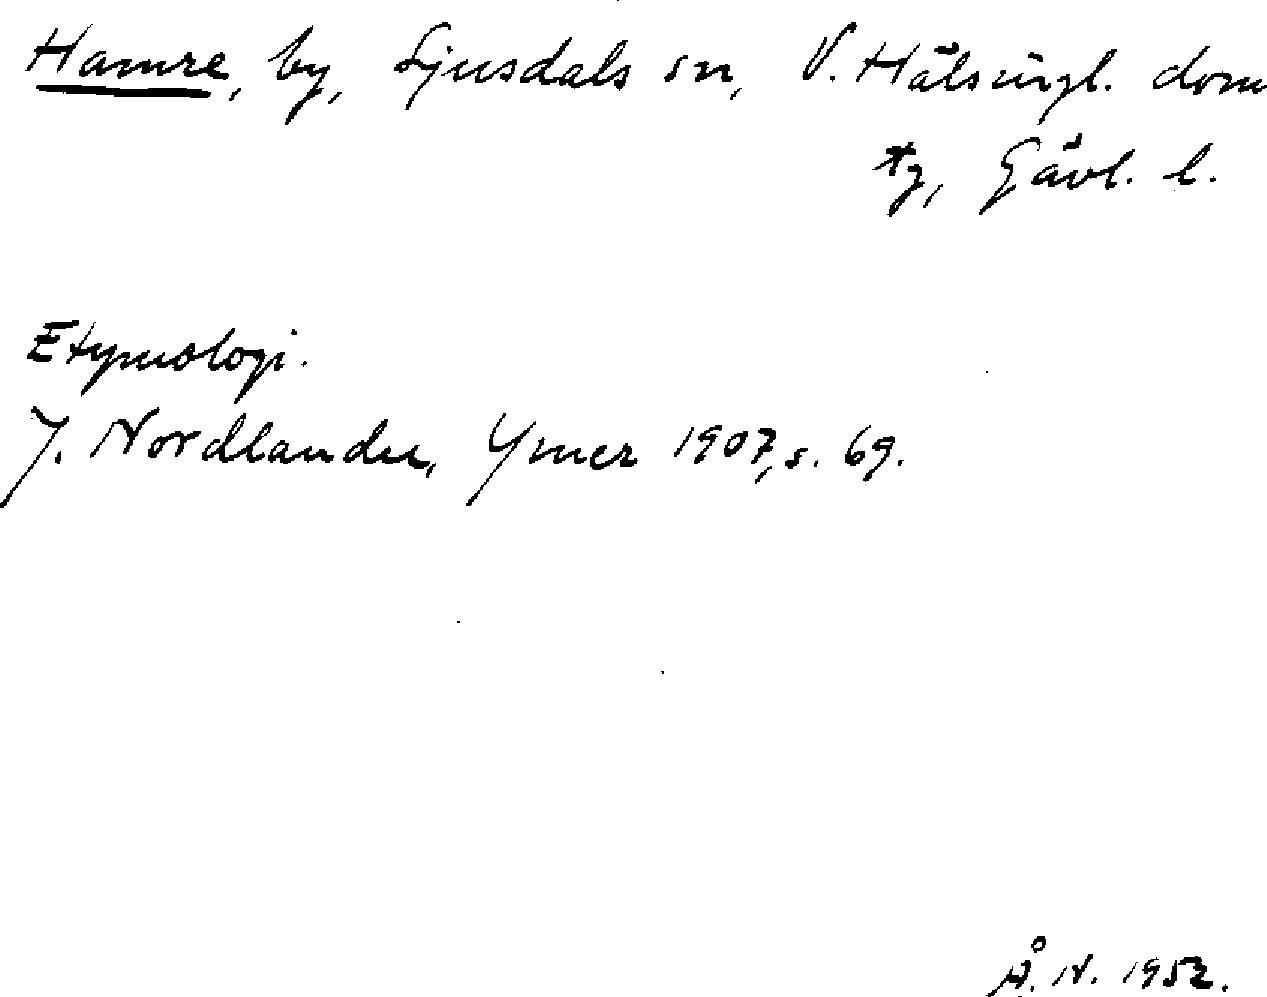 Hamre, by, Ljusdals sn, V. Hälsingl. dom
tg, Gävl. l.
Etymologi.
J. Nordlander, Ymer 1907, s. 69.
Å. N. 1952.